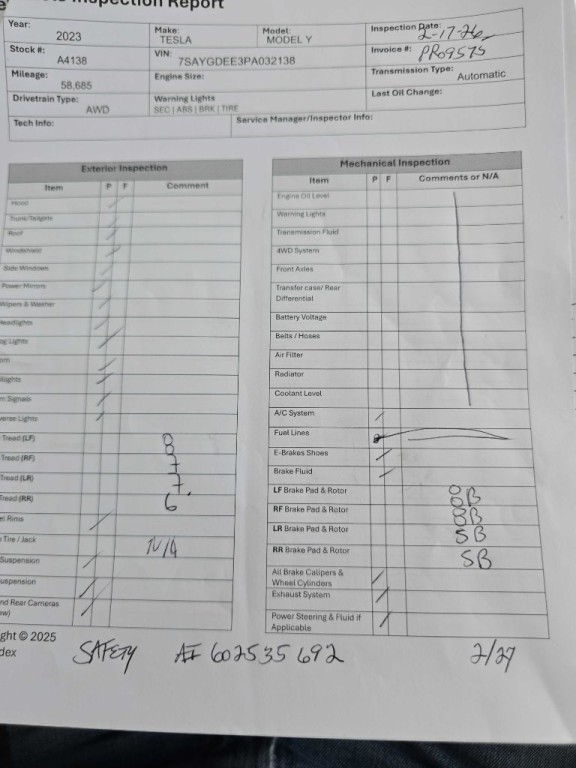 Inspection Report
Year: 2023 Make: TESLA Model: MODEL Y Inspection Date: 2-17-26
Stock #: A4138 VIN: 7SAYGDEE3PA032138 Invoice #: PR09575
Mileage: 58,685 Engine Size: Transmission Type: Automatic
Drivetrain Type: AWD Warning Lights SEC | ABS | BRK | TIRE Last Oil Change:
Tech Info: Service Manager/Inspector Info:
Exterior Inspection
Item P F Comment
Hood
Trunk/Tailgate
Roof
Windshield
Side Windows
Power Mirrors
Wipers & Washer
Headlights
og Lights
orn
ilights
rn Signals
verse Lights
Tread (LF) 8
Tread (RF) 7
Tread (LR) 7.
Tread (RR) 6
el Rims
Tire / Jack N/A
Suspension
uspension
nd Rear Cameras
ew)
Mechanical Inspection
Item P F Comments or N/A
Engine Oil Level
Warning Lights
Transmission Fluid
4WD System
Front Axles
Transfer case/ Rear
Differential
Battery Voltage
Belts / Hoses
Air Filter
Radiator
Coolant Level
A/C System
Fuel Lines
E-Brakes Shoes
Brake Fluid
LF Brake Pad & Rotor 8B
RF Brake Pad & Rotor 8B
LR Brake Pad & Rotor 5B
RR Brake Pad & Rotor 5B
All Brake Calipers &
Wheel Cylinders
Exhaust System
Power Steering & Fluid if
Applicable
ght © 2025
dex
SAFETY AI 602535692 2/27